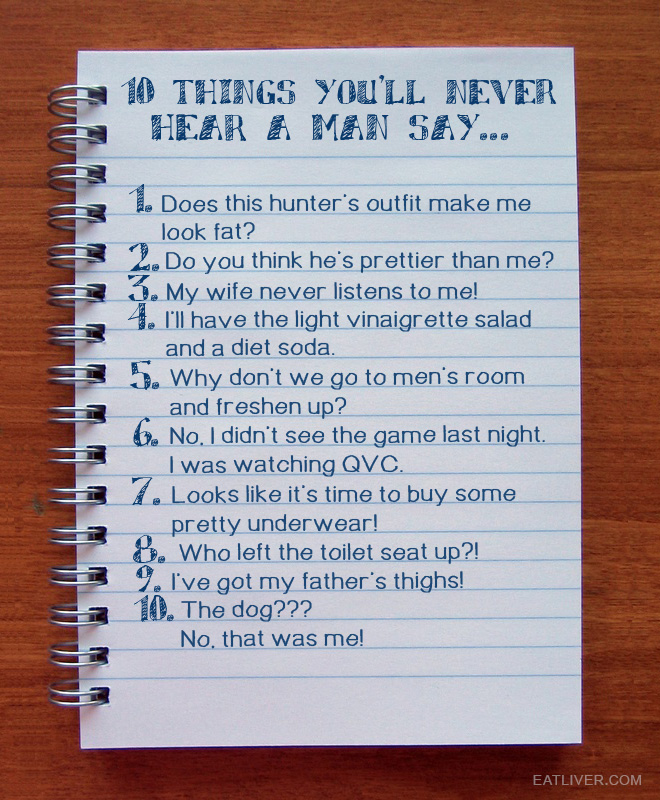 10 THINGS YOU'LL NEVER
HEAR A MAN SAY...
1. Does this hunter's outfit make me
look fat?
2. Do you think he's prettier than me?
3. My wife never listens to me!
4. I'll have the light vinaigrette salad
and a diet soda.
5. Why don't we go to men's room
and freshen up?
6. No, I didn't see the game last night.
I was watching QVC.
7. Looks like it's time to buy some
pretty underwear!
8. Who left the toilet seat up?!
9. I've got my father's thighs!
10. The dog???
No, that was me!
EATLIVER.COM